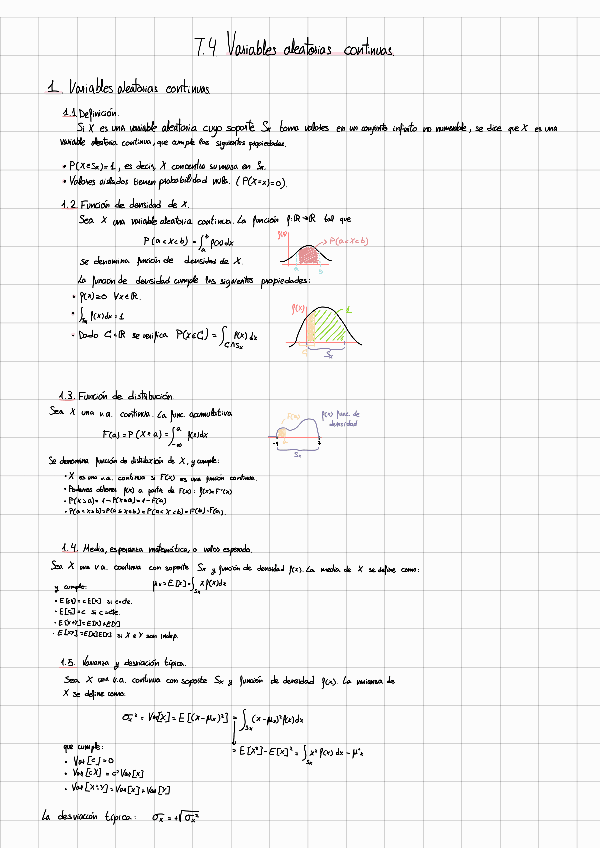 T.4 Variables aleatorias continuas.
1. Variables aleatorias continuas
1.1. Definición.
Si X es una variable aleatoria cuyo soporte Sx toma valores en un conjunto infinito no numerable, se dice que X es una
variable aleatoria continua, que cumple las siguientes propiedades.
• P(X∈Sx)=1, es decir, X concentra su masa en Sx.
• Valores aislados tienen probabilidad nula. (P(X=x)=0).
1.2. Función de densidad de X.
Sea X una variable aleatoria continua. La función f:ℝ→ℝ tal que
P(a<X<b) = ∫_a^b f(x)dx
f(x)
P(a<X<b)
a b
se denomina función de densidad de X.
La función de densidad cumple las siguientes propiedades:
• f(x)≥0 ∀x∈ℝ.
• ∫_Sx f(x)dx=1
• Dado C⊂ℝ se verifica P(X∈C) = ∫_C∩Sx f(x)dx
f(x)
1
Sx
1.3. Función de distribución
Sea X una v.a. continua. La func. acumulativa
F(a) = P(X≤a) = ∫_-∞^a f(x)dx
f(x) func. de
densidad
Sx
Se denomina función de distribución de X, y cumple:
• X es una v.a. continua si F(x) es una función continua.
• Podemos obtener f(x) a partir de F(x): f(x)=F'(x)
• P(X>a) = 1-P(X≤a) = 1-F(a)
• P(a<X≤b)=P(a≤X≤b)=P(a<X<b)=F(b)-F(a).
1.4. Media, esperanza matemática, o valor esperado.
Sea X una v.a. continua con soporte Sx y función de densidad f(x). La media de X se define como:
μx = E[X] = ∫_Sx x f(x)dx
y cumple:
• E[cX] = cE[X] si c=cte.
• E[c] = c si c=cte.
• E[X+Y] = E[X]+E[Y]
• E[XY] = E[X]E[Y] si X e Y son indep.
1.5. Varianza y desviación típica.
Sea X una v.a. continua con soporte Sx y función de densidad f(x). La varianza de
X se define como:
σx² = Var[X] = E[(X-μx)²] = ∫_Sx (x-μx)² f(x)dx
= E[X²]-E[X]² = ∫_Sx x² f(x)dx - μ²x
que cumple:
• Var[c] = 0
• Var[cX] = c²Var[X]
• Var[X±Y] = Var[X]+Var[Y]
La desviación típica: σx = +√σx²